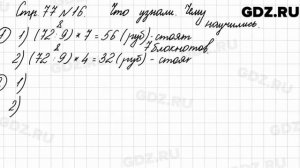 GDZ.RU
Стр. 77 № 16. Что узнали. Чему научились
8
1) (72 : 9) * 7 = 56 (руб) - стоят
7 блокнотов
8
2) (72 : 9) * 4 = 32 (руб) - стоят
1)
2)
GDZ.RU